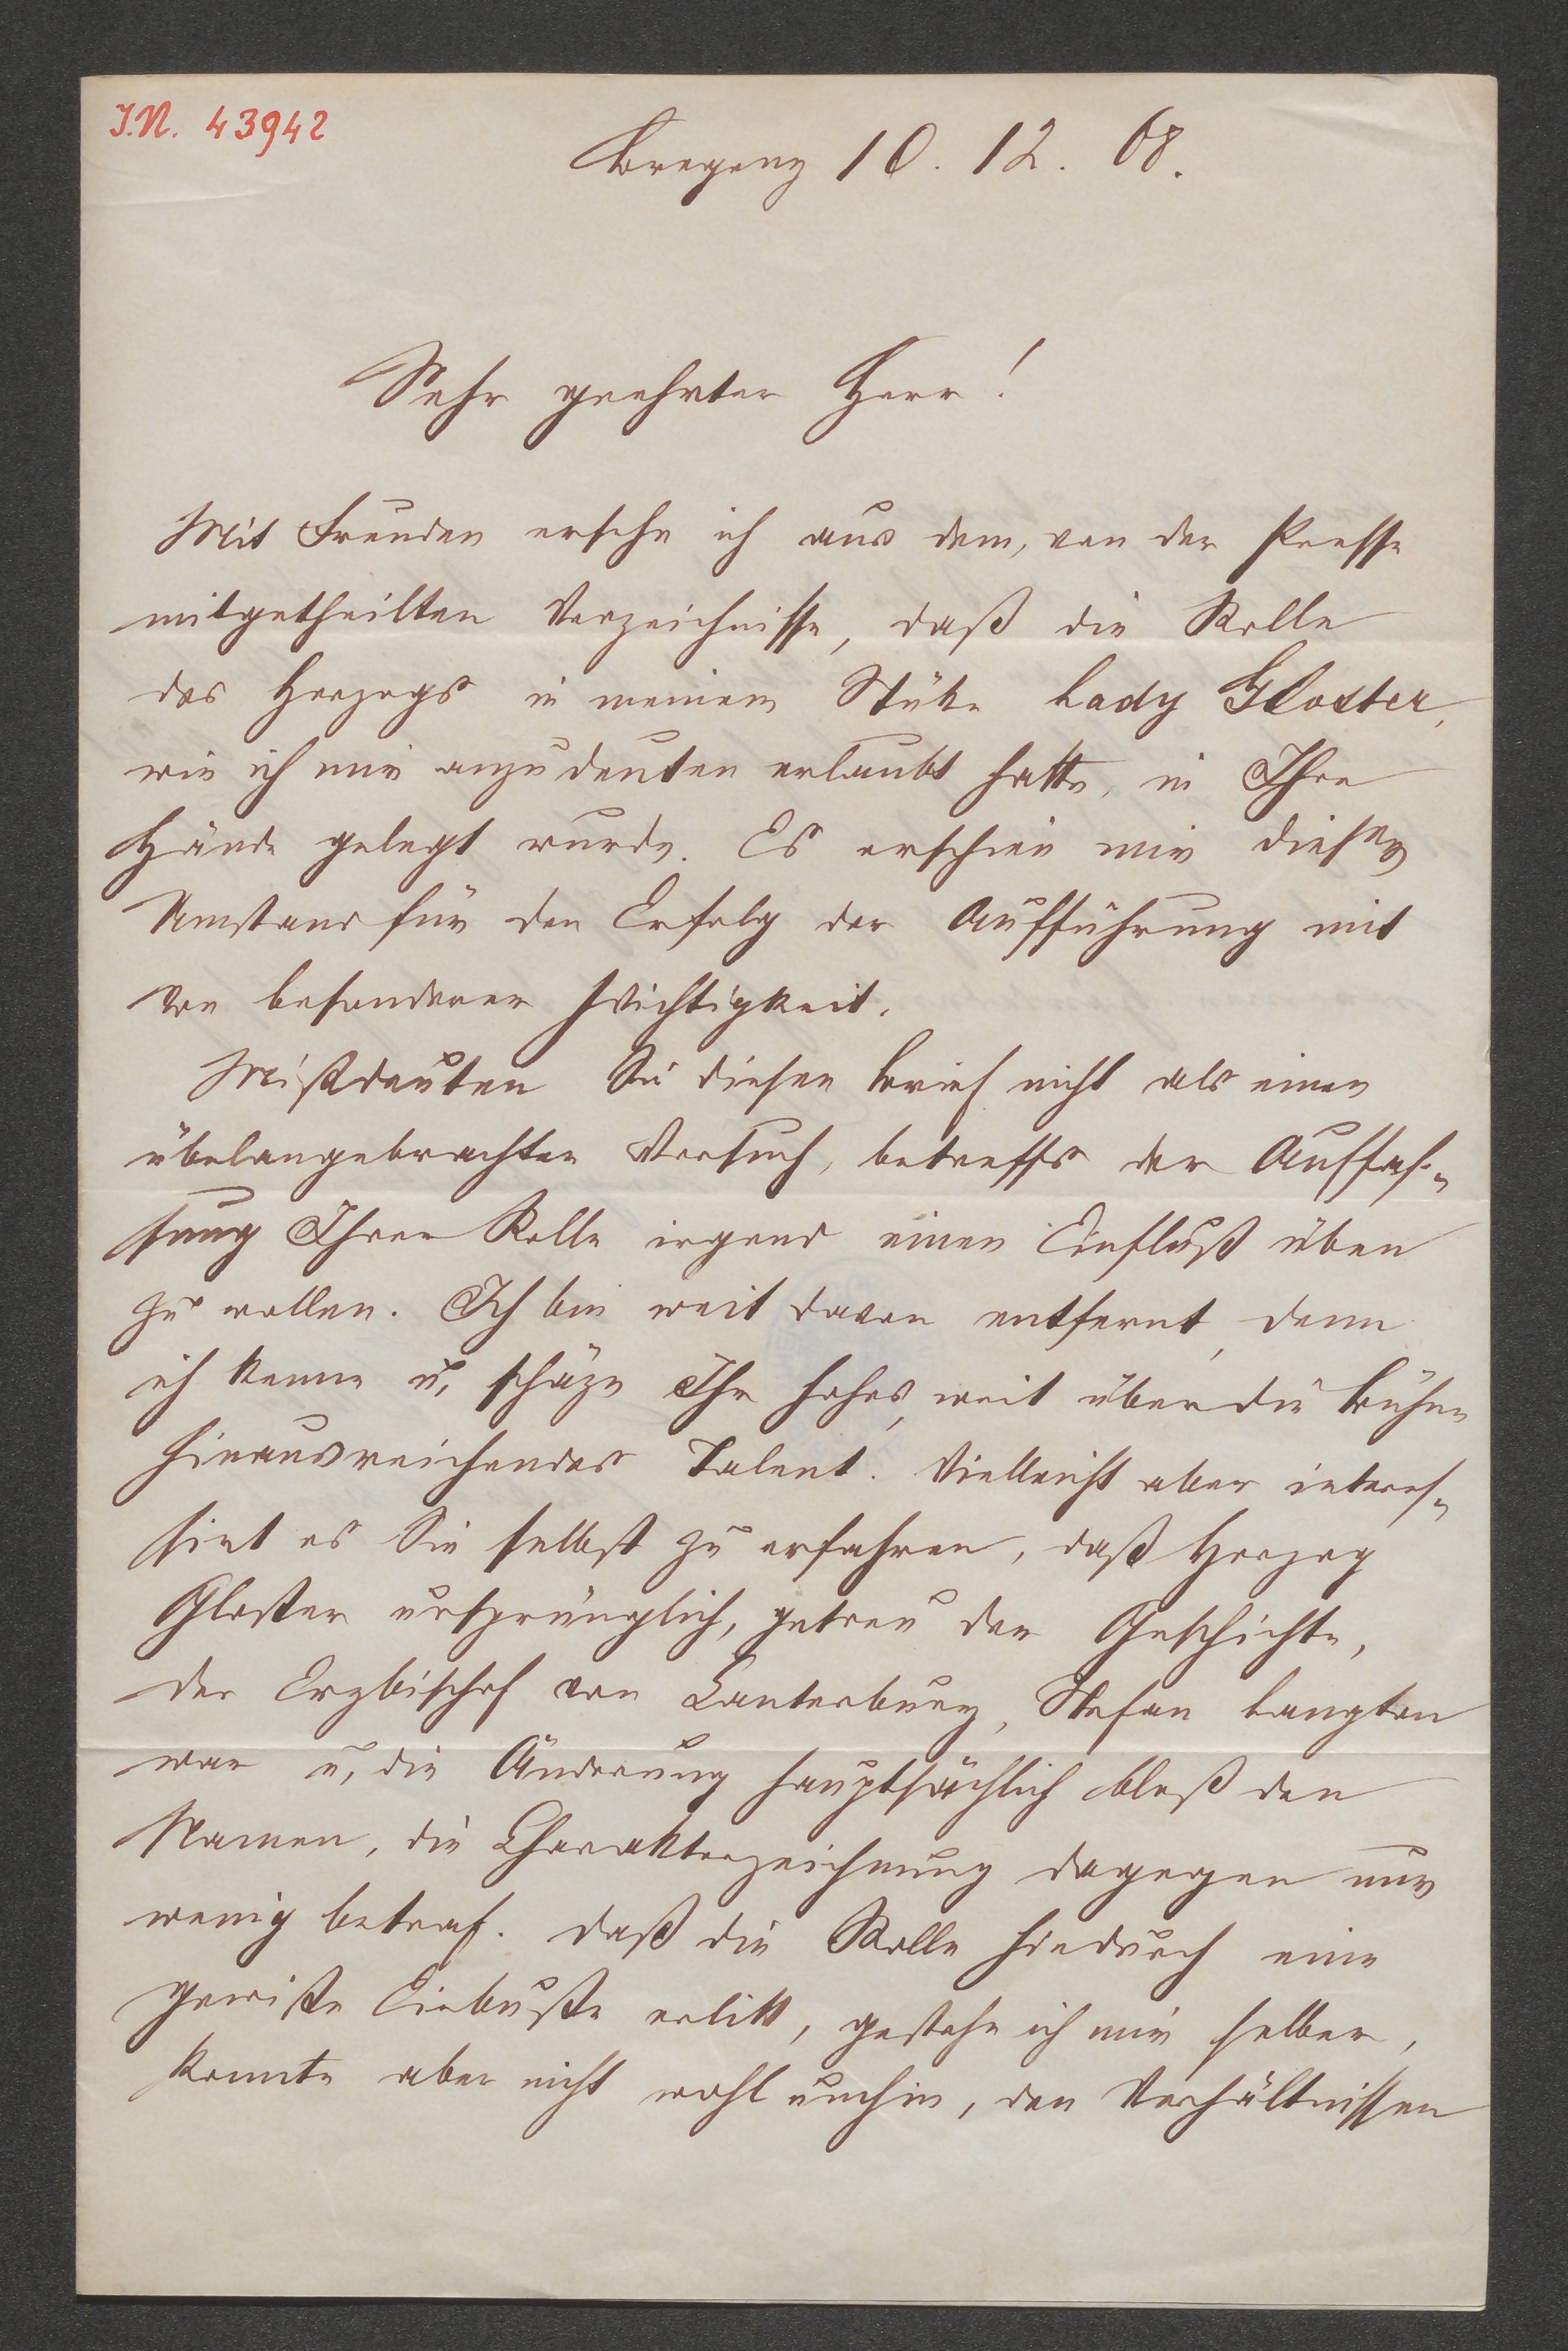 I.N. 43942
Bregenz 10. 12. 68.
Sehr geehrter Herr!
Mit Freuden ersehe ich aus dem, von der Presse
mitgetheilten Verzeichnisse, daß die Rolle
des Herzogs in meinem Stüke Lady Gloster,
wie ich mir anzudeuten erlaubt hatte, in Ihre
Hände gelegt wurde. Es erschien mir dieser
Umstand für den Erfolg der Aufführung mit
von besonderer Wichtigkeit.
Mißdeuten Sie diesen Brief nicht als einen
übelangebrachten Versuch, betreffs der Auffas-
sung Ihrer Rolle irgend einen Einfluß üben
zu wollen. Ich bin weit davon entfernt, denn
ich kenne u, schäze Ihr hohes, weit über die Bühne
hinausreichendes Talent. Vielleicht aber interes-
sirt es Sie selbst zu erfahren, daß Herzog
Gloster ursprünglich, getreu der Geschichte,
der Erzbischof von Canterbury, Stefan Langton
war u, die Änderung hauptsächlich bloß den
Namen, die Charakterzeichnung dagegen nur
wenig betraf. Daß die Rolle hiedurch eine
gewiße Einbuße erlitt, gestehe ich mir selber,
konnte aber nicht wohl umhin, den Verhältnissen